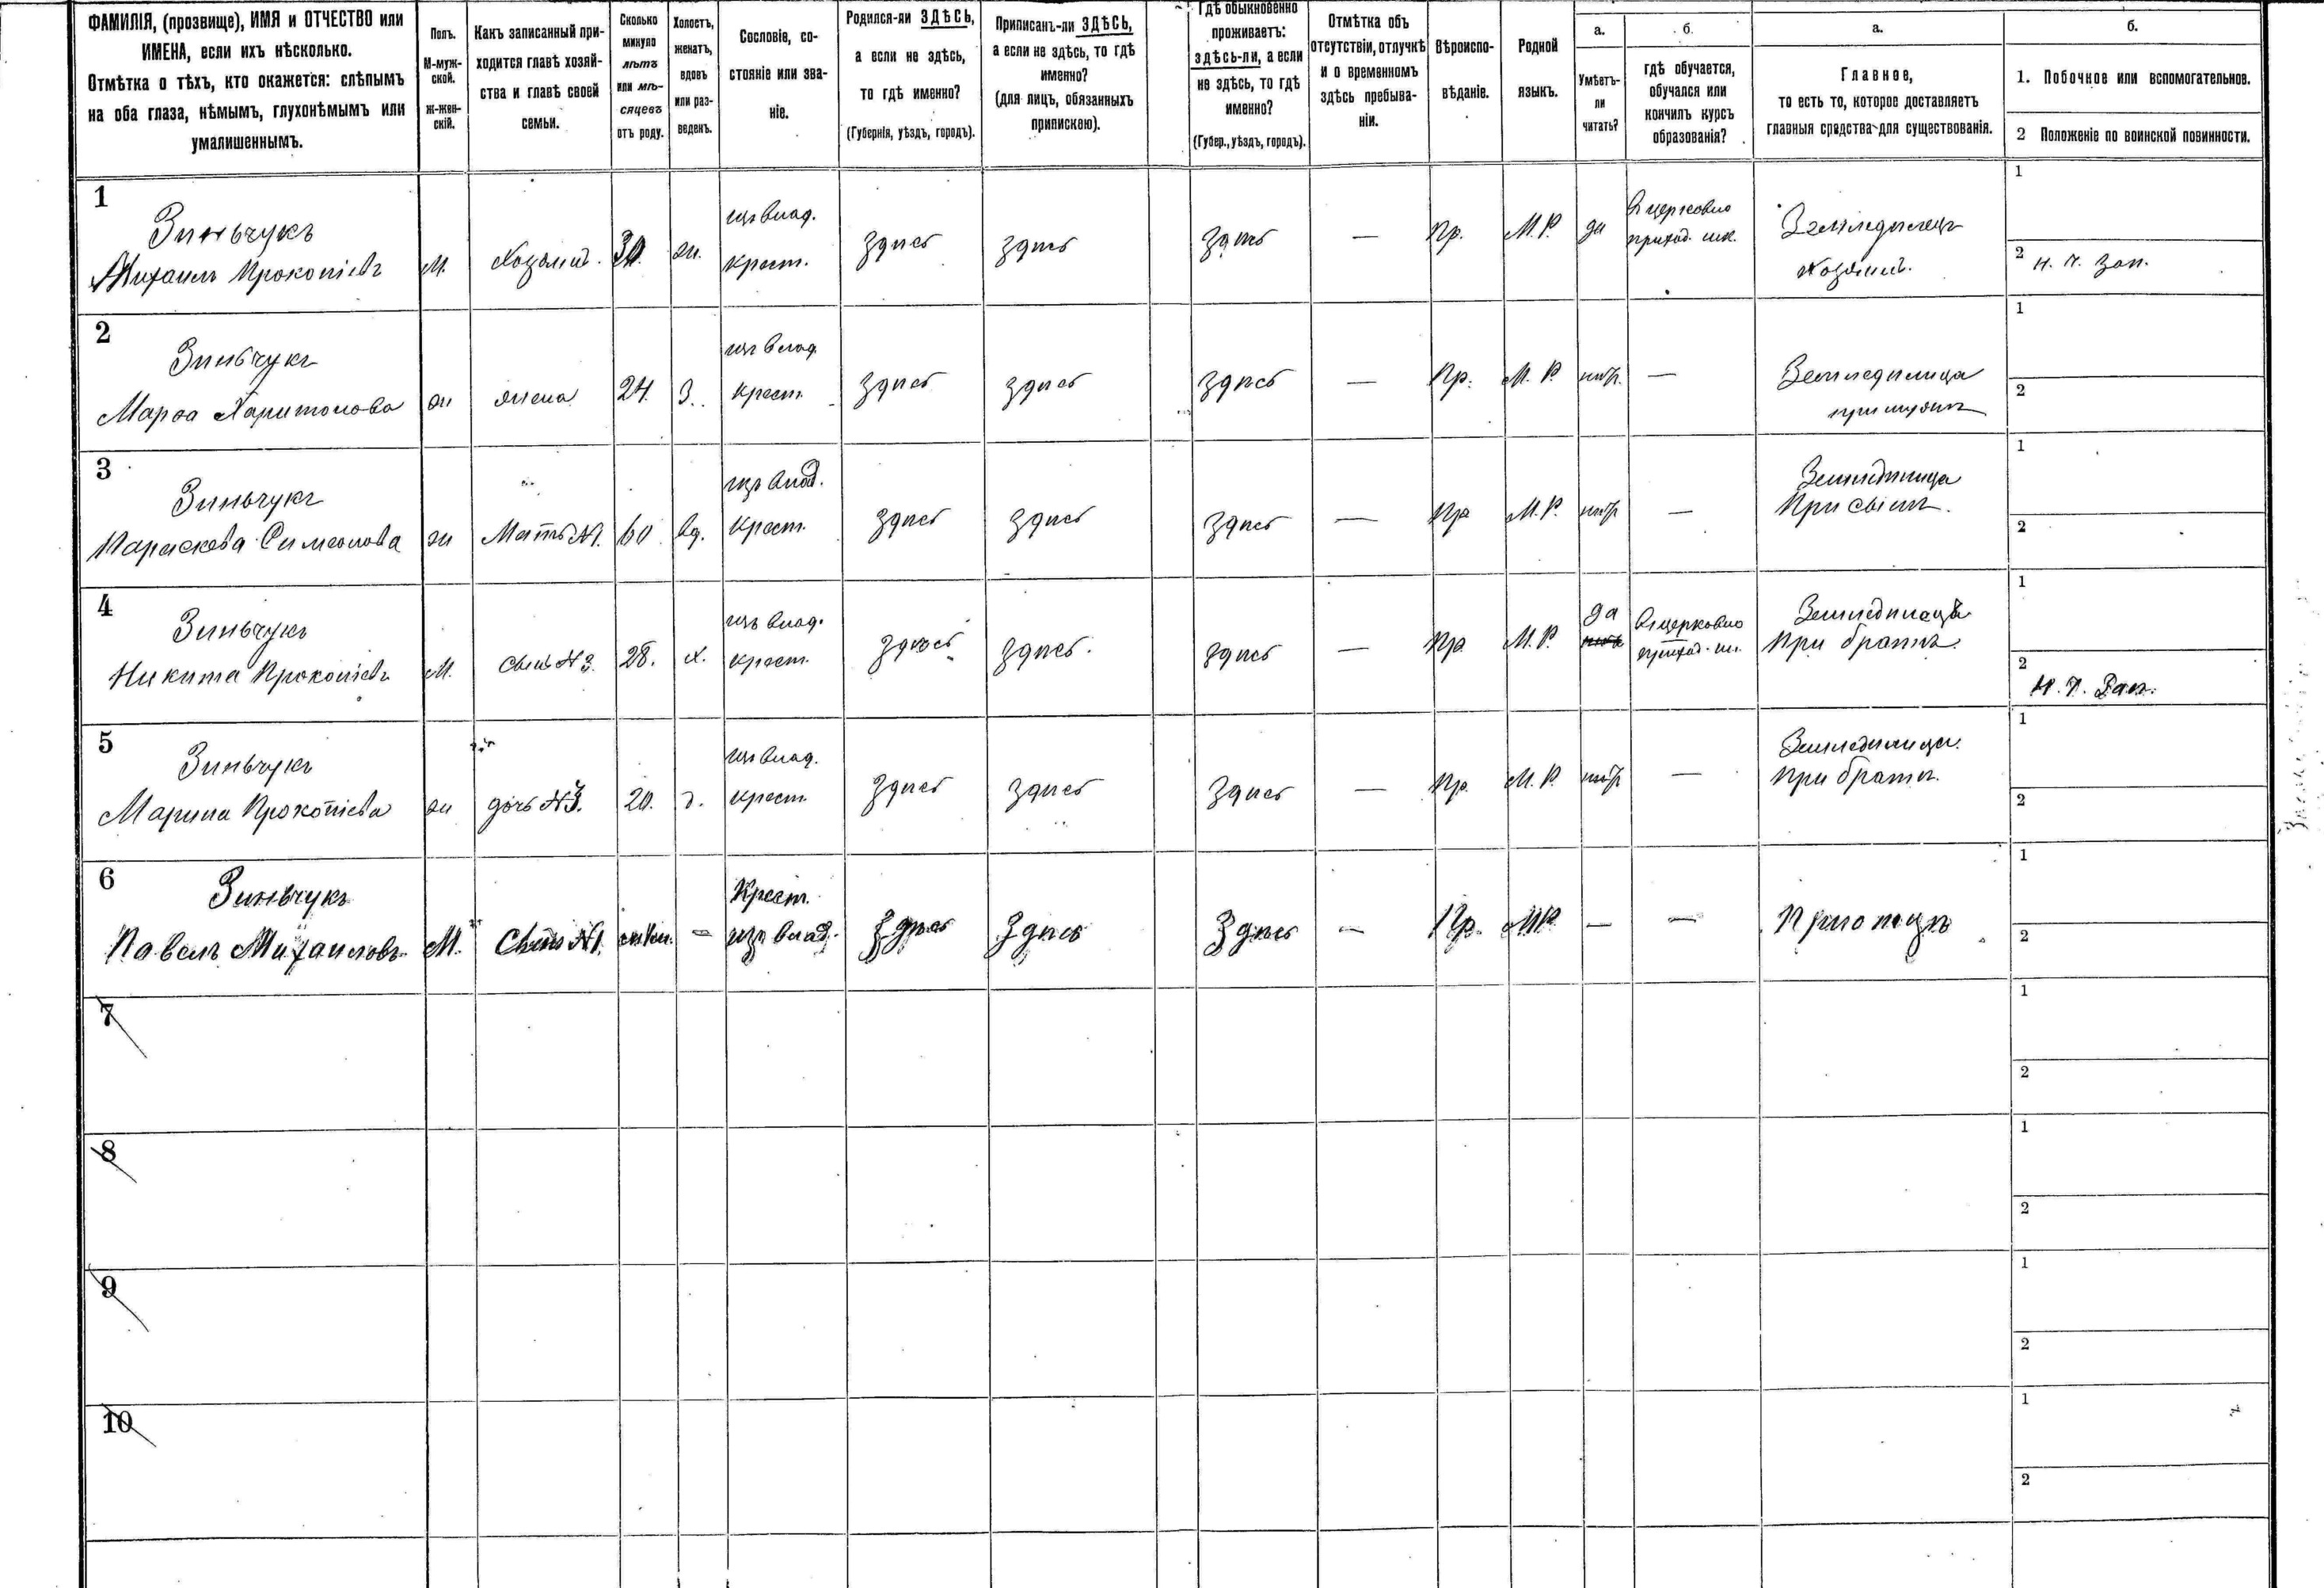 ФАМИЛІЯ, (прозвище), ИМЯ и ОТЧЕСТВО или
ИМЕНА, если ихъ нѣсколько.
Отмѣтка о тѣхъ, кто окажется: слѣпымъ
на оба глаза, нѣмымъ, глухонѣмымъ или
умалишеннымъ.
Полъ.
М-муж-
ской.
ж-жен-
скій.
Какъ записанный при-
ходится главѣ хозяй-
ства и главѣ своей
семьи.
Сколько
минуло
лѣтъ
или мѣ-
сяцевъ
отъ роду.
Холостъ,
женатъ,
вдовъ
или раз-
веденъ.
Сословіе, со-
стояніе или зва-
ніе.
Родился-ли ЗДѢСЬ,
а если не здѣсь,
то гдѣ именно?
(Губернія, уѣздъ, городъ).
Приписанъ-ли ЗДѢСЬ,
а если не здѣсь, то гдѣ
именно?
(для лицъ, обязанныхъ
припискою).
Гдѣ обыкновенно
проживаетъ:
здѣсь-ли, а если
не здѣсь, то гдѣ
именно?
(Губер., уѣздъ, городъ).
Отмѣтка объ
отсутствіи, отлучкѣ
и о временномъ
здѣсь пребыва-
ніи.
Вѣроиспо-
вѣданіе.
Родной
языкъ.
а.
Умѣетъ-
ли
читать?
б.
гдѣ обучается,
обучался или
кончилъ курсъ
образованія?
а.
Главное,
то есть то, которое доставляетъ
главныя средства для существованія.
б.
1. Побочное или вспомогательное.
2 Положеніе по воинской повинности.
1
Зинчукъ
Михаилъ Прокопіевъ
М.
Хозяинъ.
30.
ж.
изъ влад.
крест.
здѣсь
здѣсь
здѣсь
—
Пр.
М.Р.
да
В церковно
приход. шк.
Земледѣлецъ
Хозяинъ.
1
2
2
Зинчукъ
Марѳа Харитонова
ж
жена
24.
З.
изъ влад.
крест.
здѣсь
здѣсь
здѣсь
—
Пр.
М. Р.
—
Земледѣлица
при мужѣ
1
2
3
Зинчукъ
Параскева Симеонова
ж
Мать №1.
60
вд.
изъ влад.
крест.
здѣсь
здѣсь
здѣсь
—
Пр
М. Р.
—
Земледѣлица
При сынѣ.
1
2
4
Зинчукъ
Никита Прокопіевъ
М.
сынъ №3.
28.
х.
изъ влад.
крест.
здѣсь
здѣсь.
здѣсь
—
Пр
М. Р.
да
В церковно
приход. шк.
Земледѣлецъ
При братѣ.
1
2
5
Зинчукъ
Марина Прокопіева
ж
дочь №3.
20.
д.
изъ влад.
крест.
здѣсь
здѣсь
здѣсь
—
Пр.
М. Р.
—
Земледѣлица.
При братѣ.
1
2
6
Зинчукъ
Павелъ Михаиловъ
М.
Сынъ №1.
—
Крест.
изъ влад.
Здѣсь
Здѣсь
Здѣсь
—
Пр.
МР.
—
—
При отцѣ
1
2
7
1
2
8
1
2
9
1
2
10
1
2